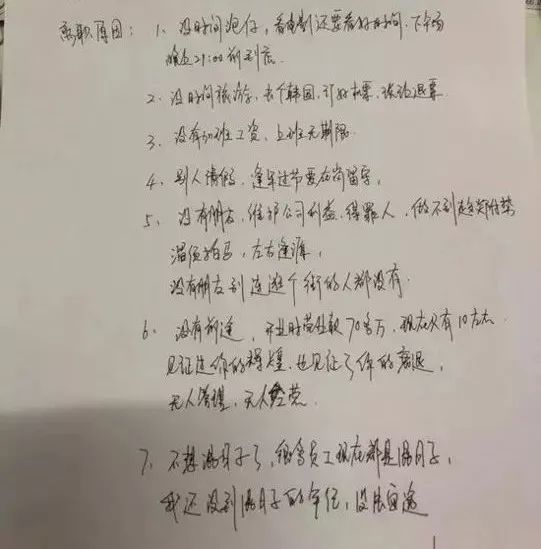 离职原因：1、没时间泡仔，看电影还要看好时间，下午场
难道21:00前到店
2、没时间旅游，去个韩国，订好机票，被迫退票
3、没有加班工资，上班无期限
4、别人请假，逢年过节要在岗留守，
5、没有朋友，维护公司利益，得罪人，做不到趋炎附势
溜须拍马，左右逢源，
没有朋友到连逛个街的人都没有
6、没有前途，开业时营业额70多万，现在只有10左右
见证过你的辉煌，也见证了你的衰退，
无人管理，无人经营
7、不想混日子了，很多员工现在都是混日子，
我还没到混日子的年纪，没法